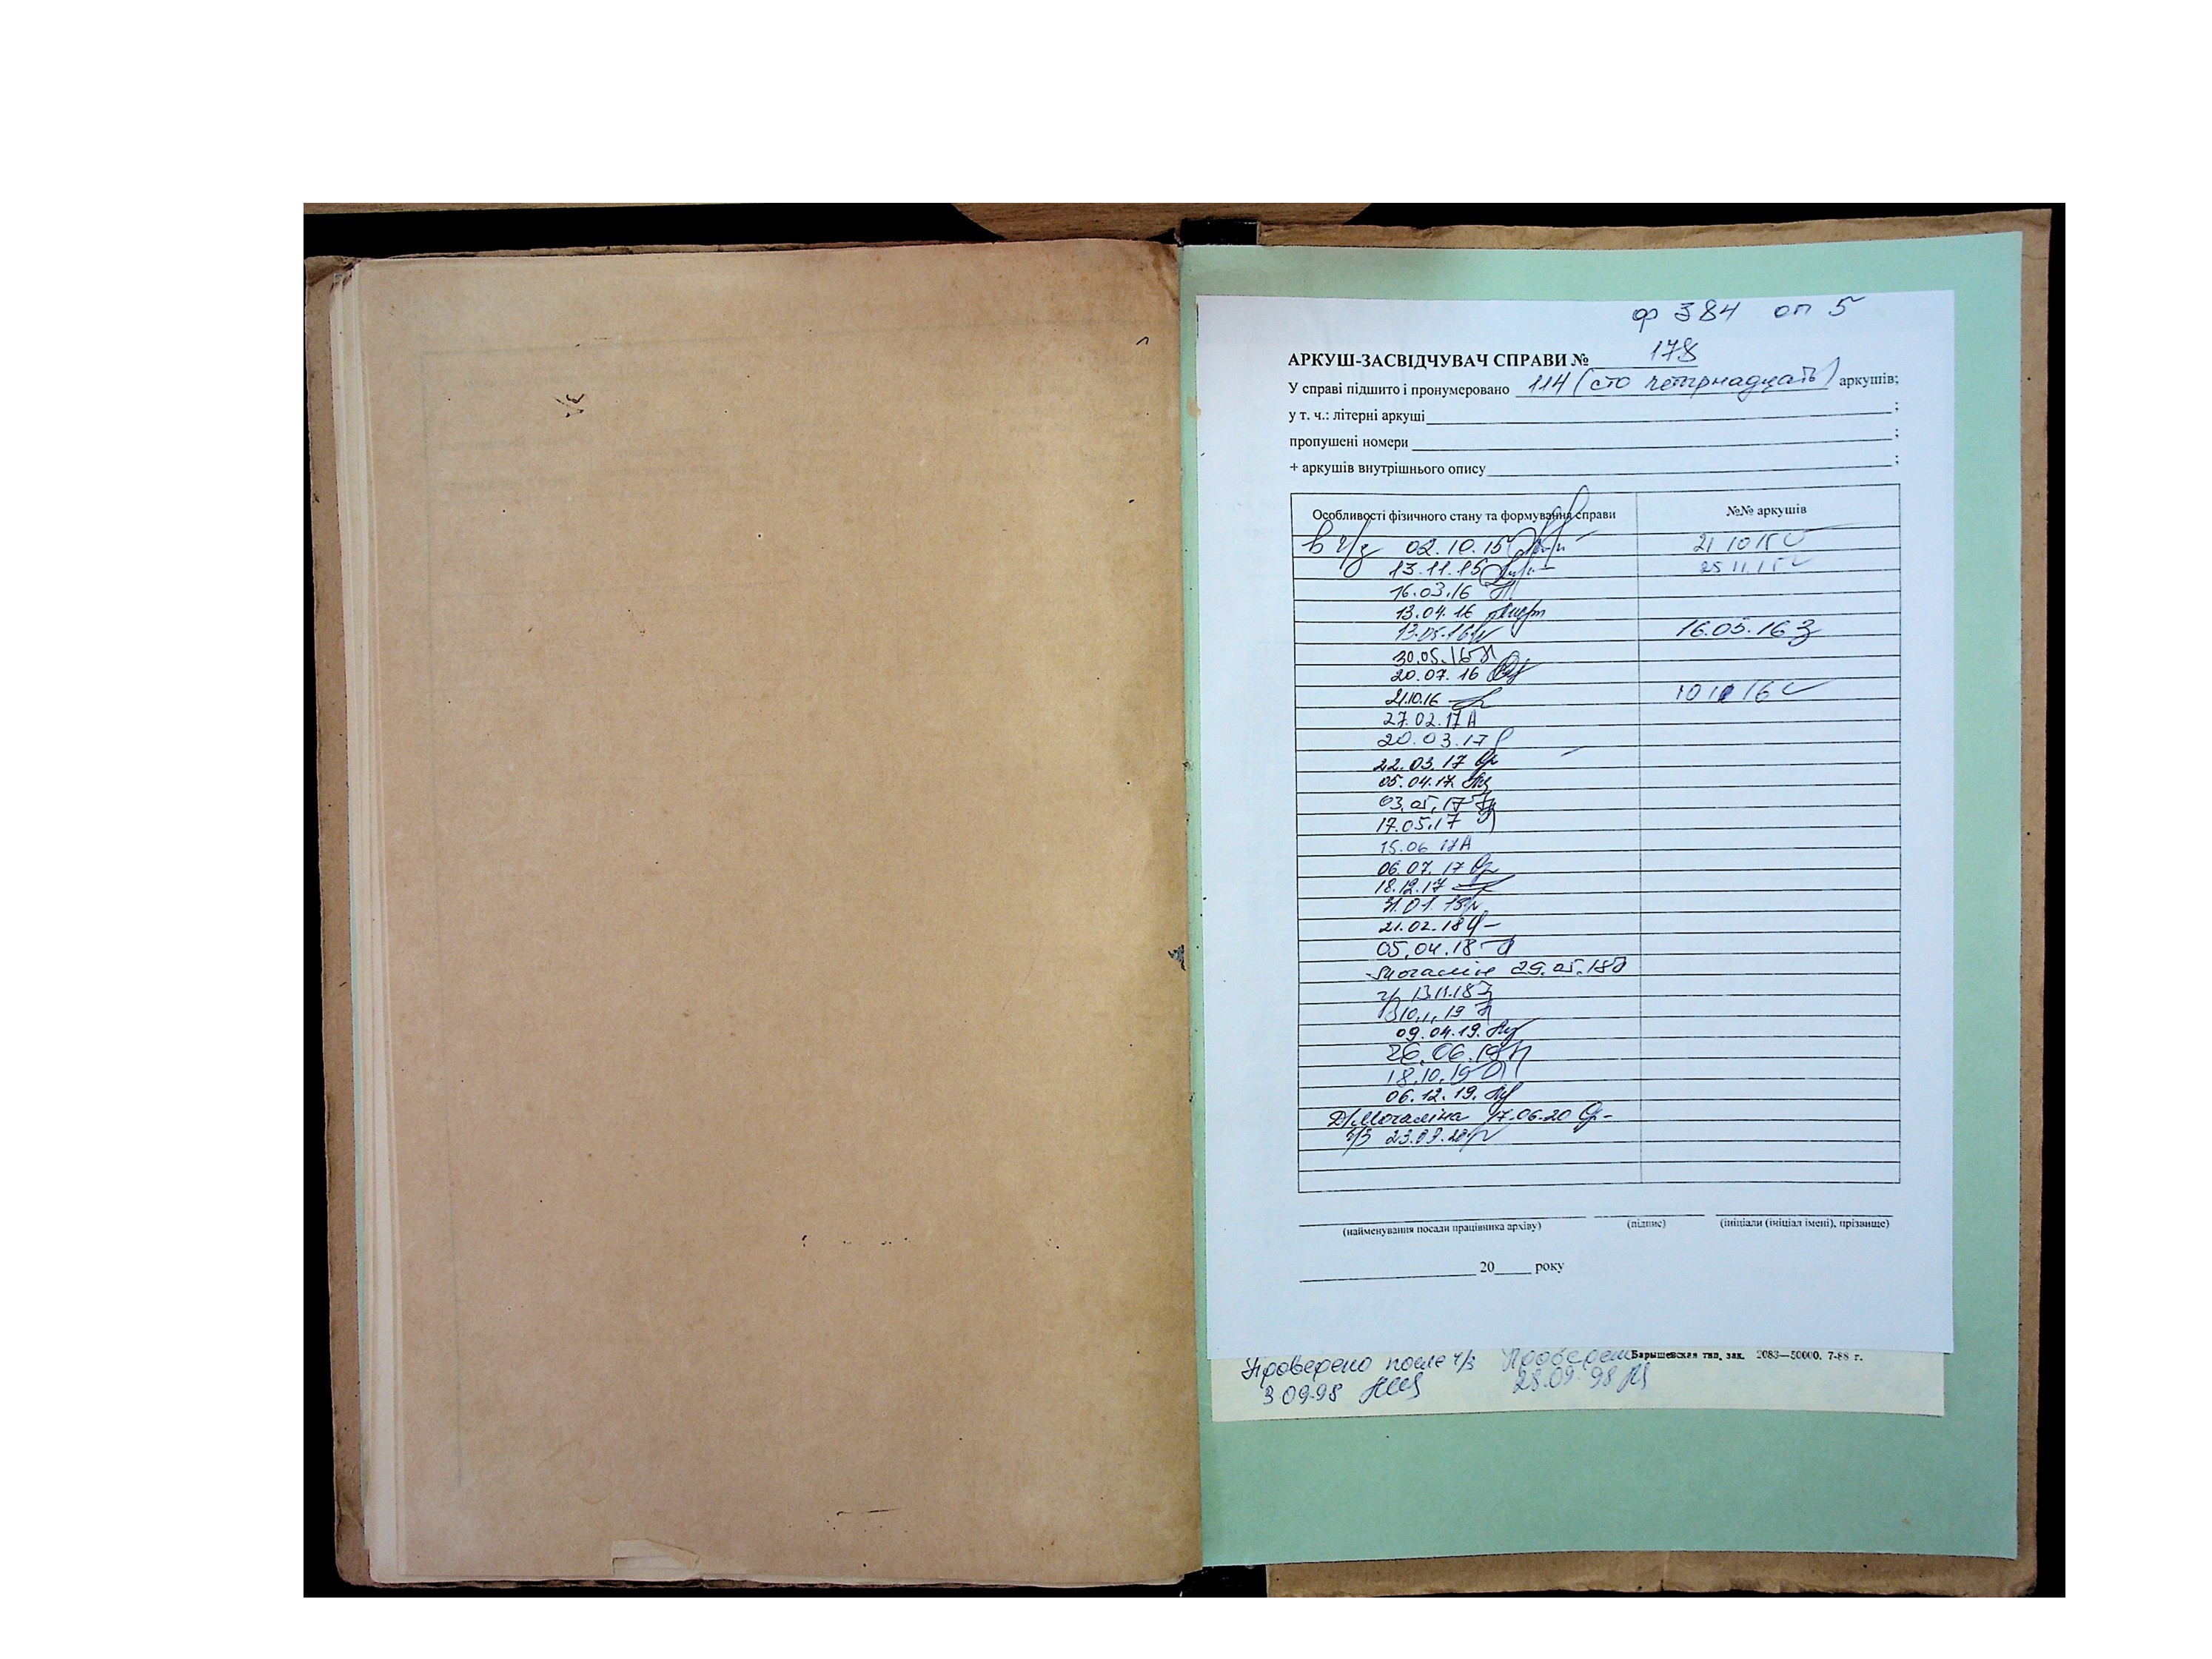 ф 384 оп 5
АРКУШ-ЗАСВІДЧУВАЧ СПРАВИ № 178
У справі підшито і пронумеровано 114 (сто чотирнадцать) аркушів;
у т. ч.: літерні аркуші ;
пропущені номери ;
+ аркушів внутрішнього опису ;
Особливості фізичного стану та формування справи №№ аркушів
в ч/з 02.10.15 21 10 15
13.11.15 25 11 15
16.03.16
13.04.16
13.05.16 16.05.16 З
30.05.16
20.07.16
21.10.16 16
27.02.17 А
20.03.17
22.03.17
05.04.17.
03.05.17
17.05.17
15.06 17 А
06.07.17
18.12.17
31.01.18
21.02.18
05.04.18
29.05.18
13.11.18
19
09.04.19.
26.06.19
18.10.19
06.12.19.
Д/Мочаліна 17.06.20
ч/з 23.09.20
(найменування посади працівника архіву) (підпис) (ініціали (ініціал імені), прізвище)
20 року
Барышевская тип. зак. 2083—50000. 7-88 г.
Проверено после ч/з Проверено
3 09.98 28.09.98